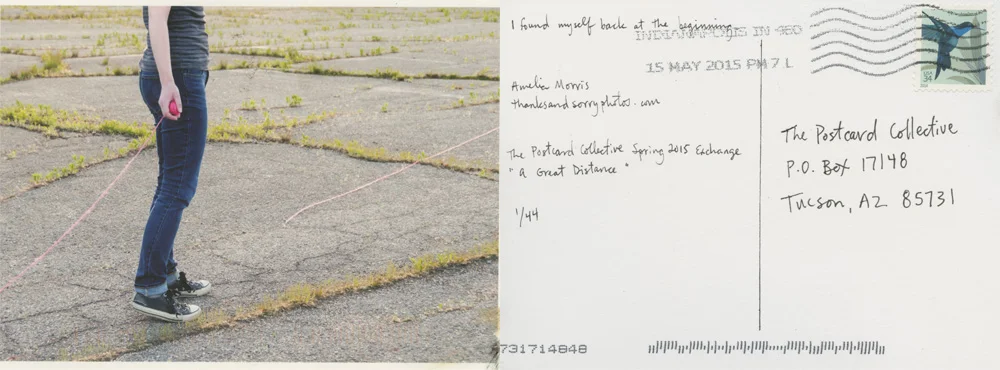 I found myself back at the beginning.
INDIANAPOLIS IN 460
15 MAY 2015 PM 7 L
Amelia Morris
thanksandsorryphotos.com
The Postcard Collective Spring 2015 Exchange
"A Great Distance"
1/44
USA
34
The Postcard Collective
P.O. Box 17148
Tucson, AZ 85731
731714848